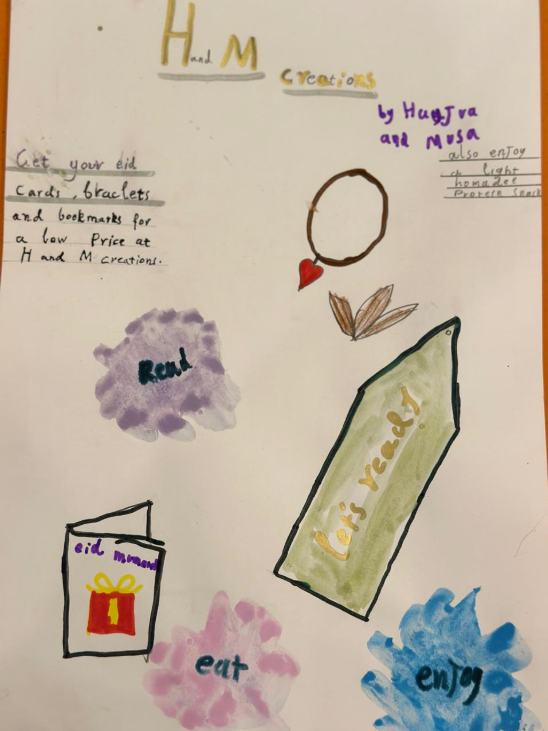 H and M
creations
by Hunjra
and Musa
Get your eid
Cards, braclets
and bookmarks for
a low Price at
H and M creations.
also enjoy
a light
homadee
Protein Snack
Read
Let's read!
eid
eat
enjoy